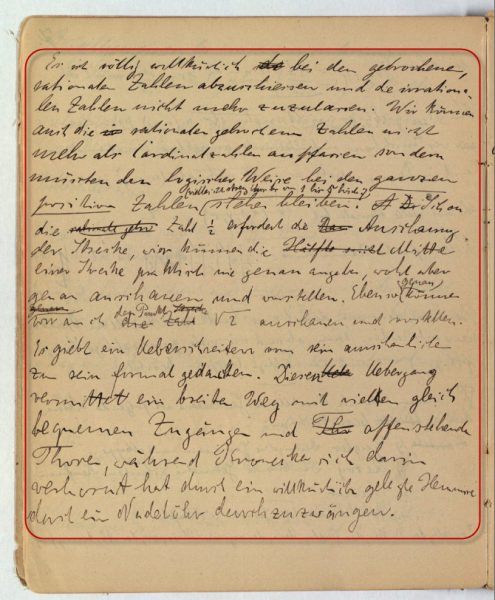 Es ist völlig willkürlich bei den gebrochenen,
rationalen Zahlen abzuschliessen und die irrationa-
len Zahlen nicht mehr zuzulassen. Wir können
auch die rationalen gebrochenen Zahlen nicht
mehr als Cardinalzahlen auffassen sondern
müssten den logischer Weise bei den ganzen
positiven Zahlen stehen bleiben. Schon
die Zahl ½ erfordert die Anschauung
der Strecke, wir können die Hälfte Mitte
einer Strecke praktisch nie genau angeben, wohl aber
genau anschauen und vorstellen. Ebenso genau können
wir auch den Punkt √2 anschauen und vorstellen.
Es giebt ein Ueberschreiten vom sein anschauliche
zum sein formal gedachten. Diesen Uebergang
vermittelt ein breiter Weg mit vielen gleich
bequemen Zugängen und offenstehende
Thoren, während Kronecker sich darin
verbohrt hat durch ein willkürliche gelegte Hemmnis
durch ein Nadelöhr durchzuzwängen.